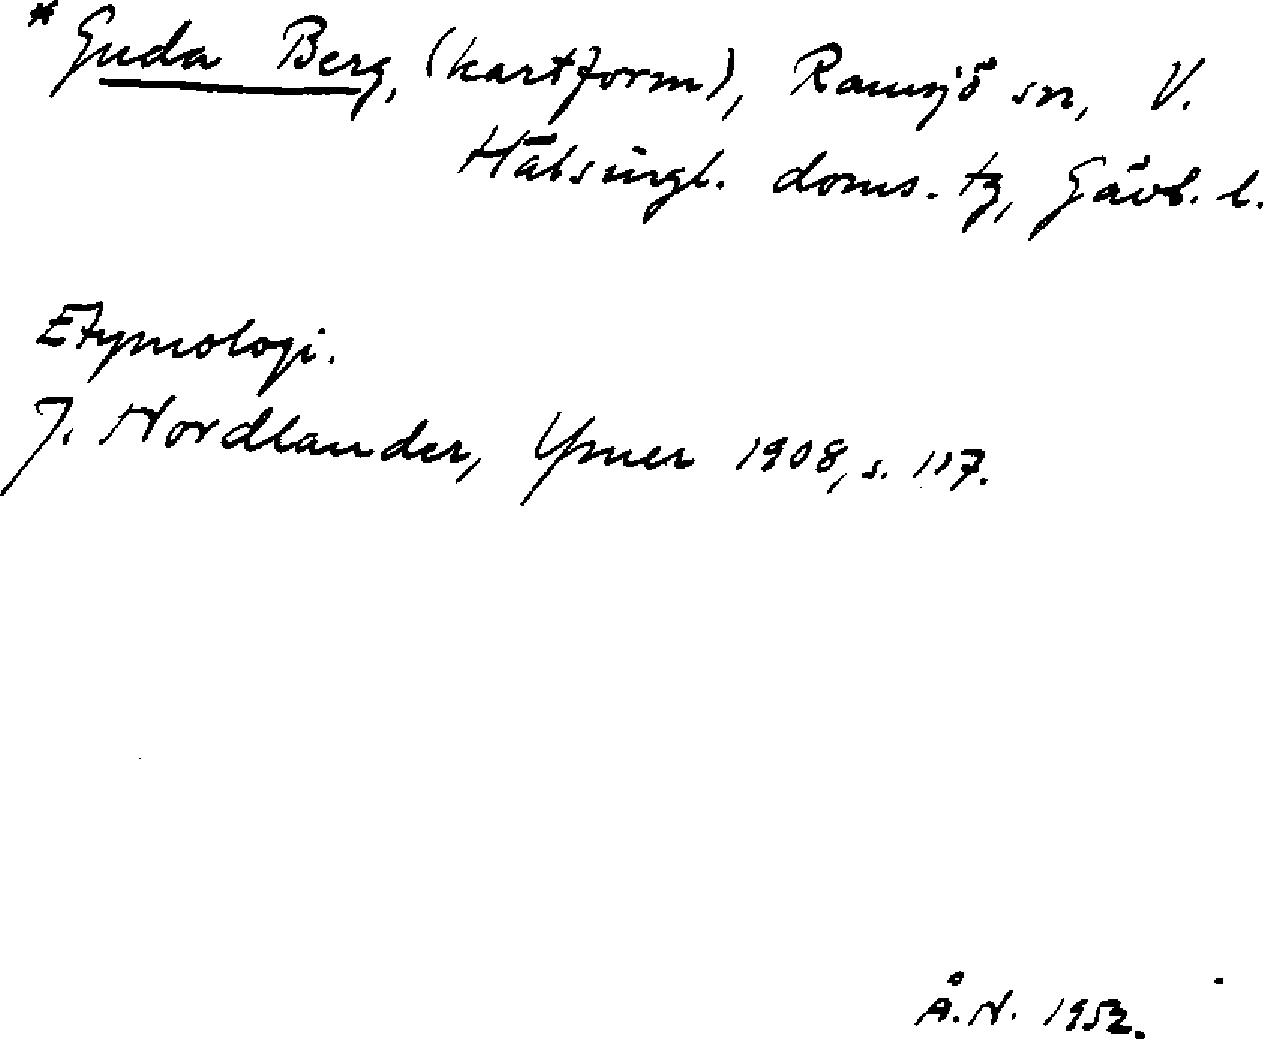 * Guda Berg, (kartform), Ramsjö sn, V.
Hälsingl. doms. tg, Gävb. l.
Etymologi.
J. Nordlander, Ymer 1908, s. 117.
Å.N. 1952.